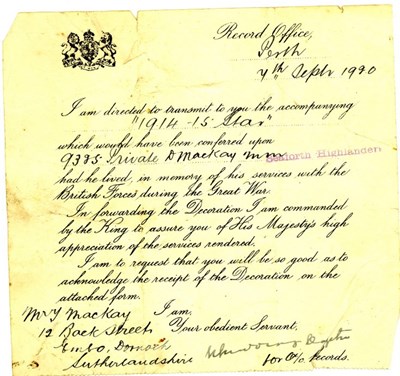 Record Office,
Perth
7th Septr 1920
I am directed to transmit to you the accompanying
"1914-15 Star"
which would have been conferred upon
9385 Private D Mackay MM
Seaforth Highlanders
had he lived, in memory of his services with the
British Forces during the Great War.
In forwarding the Decoration I am commanded
by the King to assure you of His Majesty's high
appreciation of the services rendered.
I am to request that you will be so good as to
acknowledge the receipt of the Decoration on the
attached form.
I am,
Your obedient Servant,
for O/c Records.
Mr Y Mackay
12 Back Street
Embo, Dornoch
Sutherlandshire